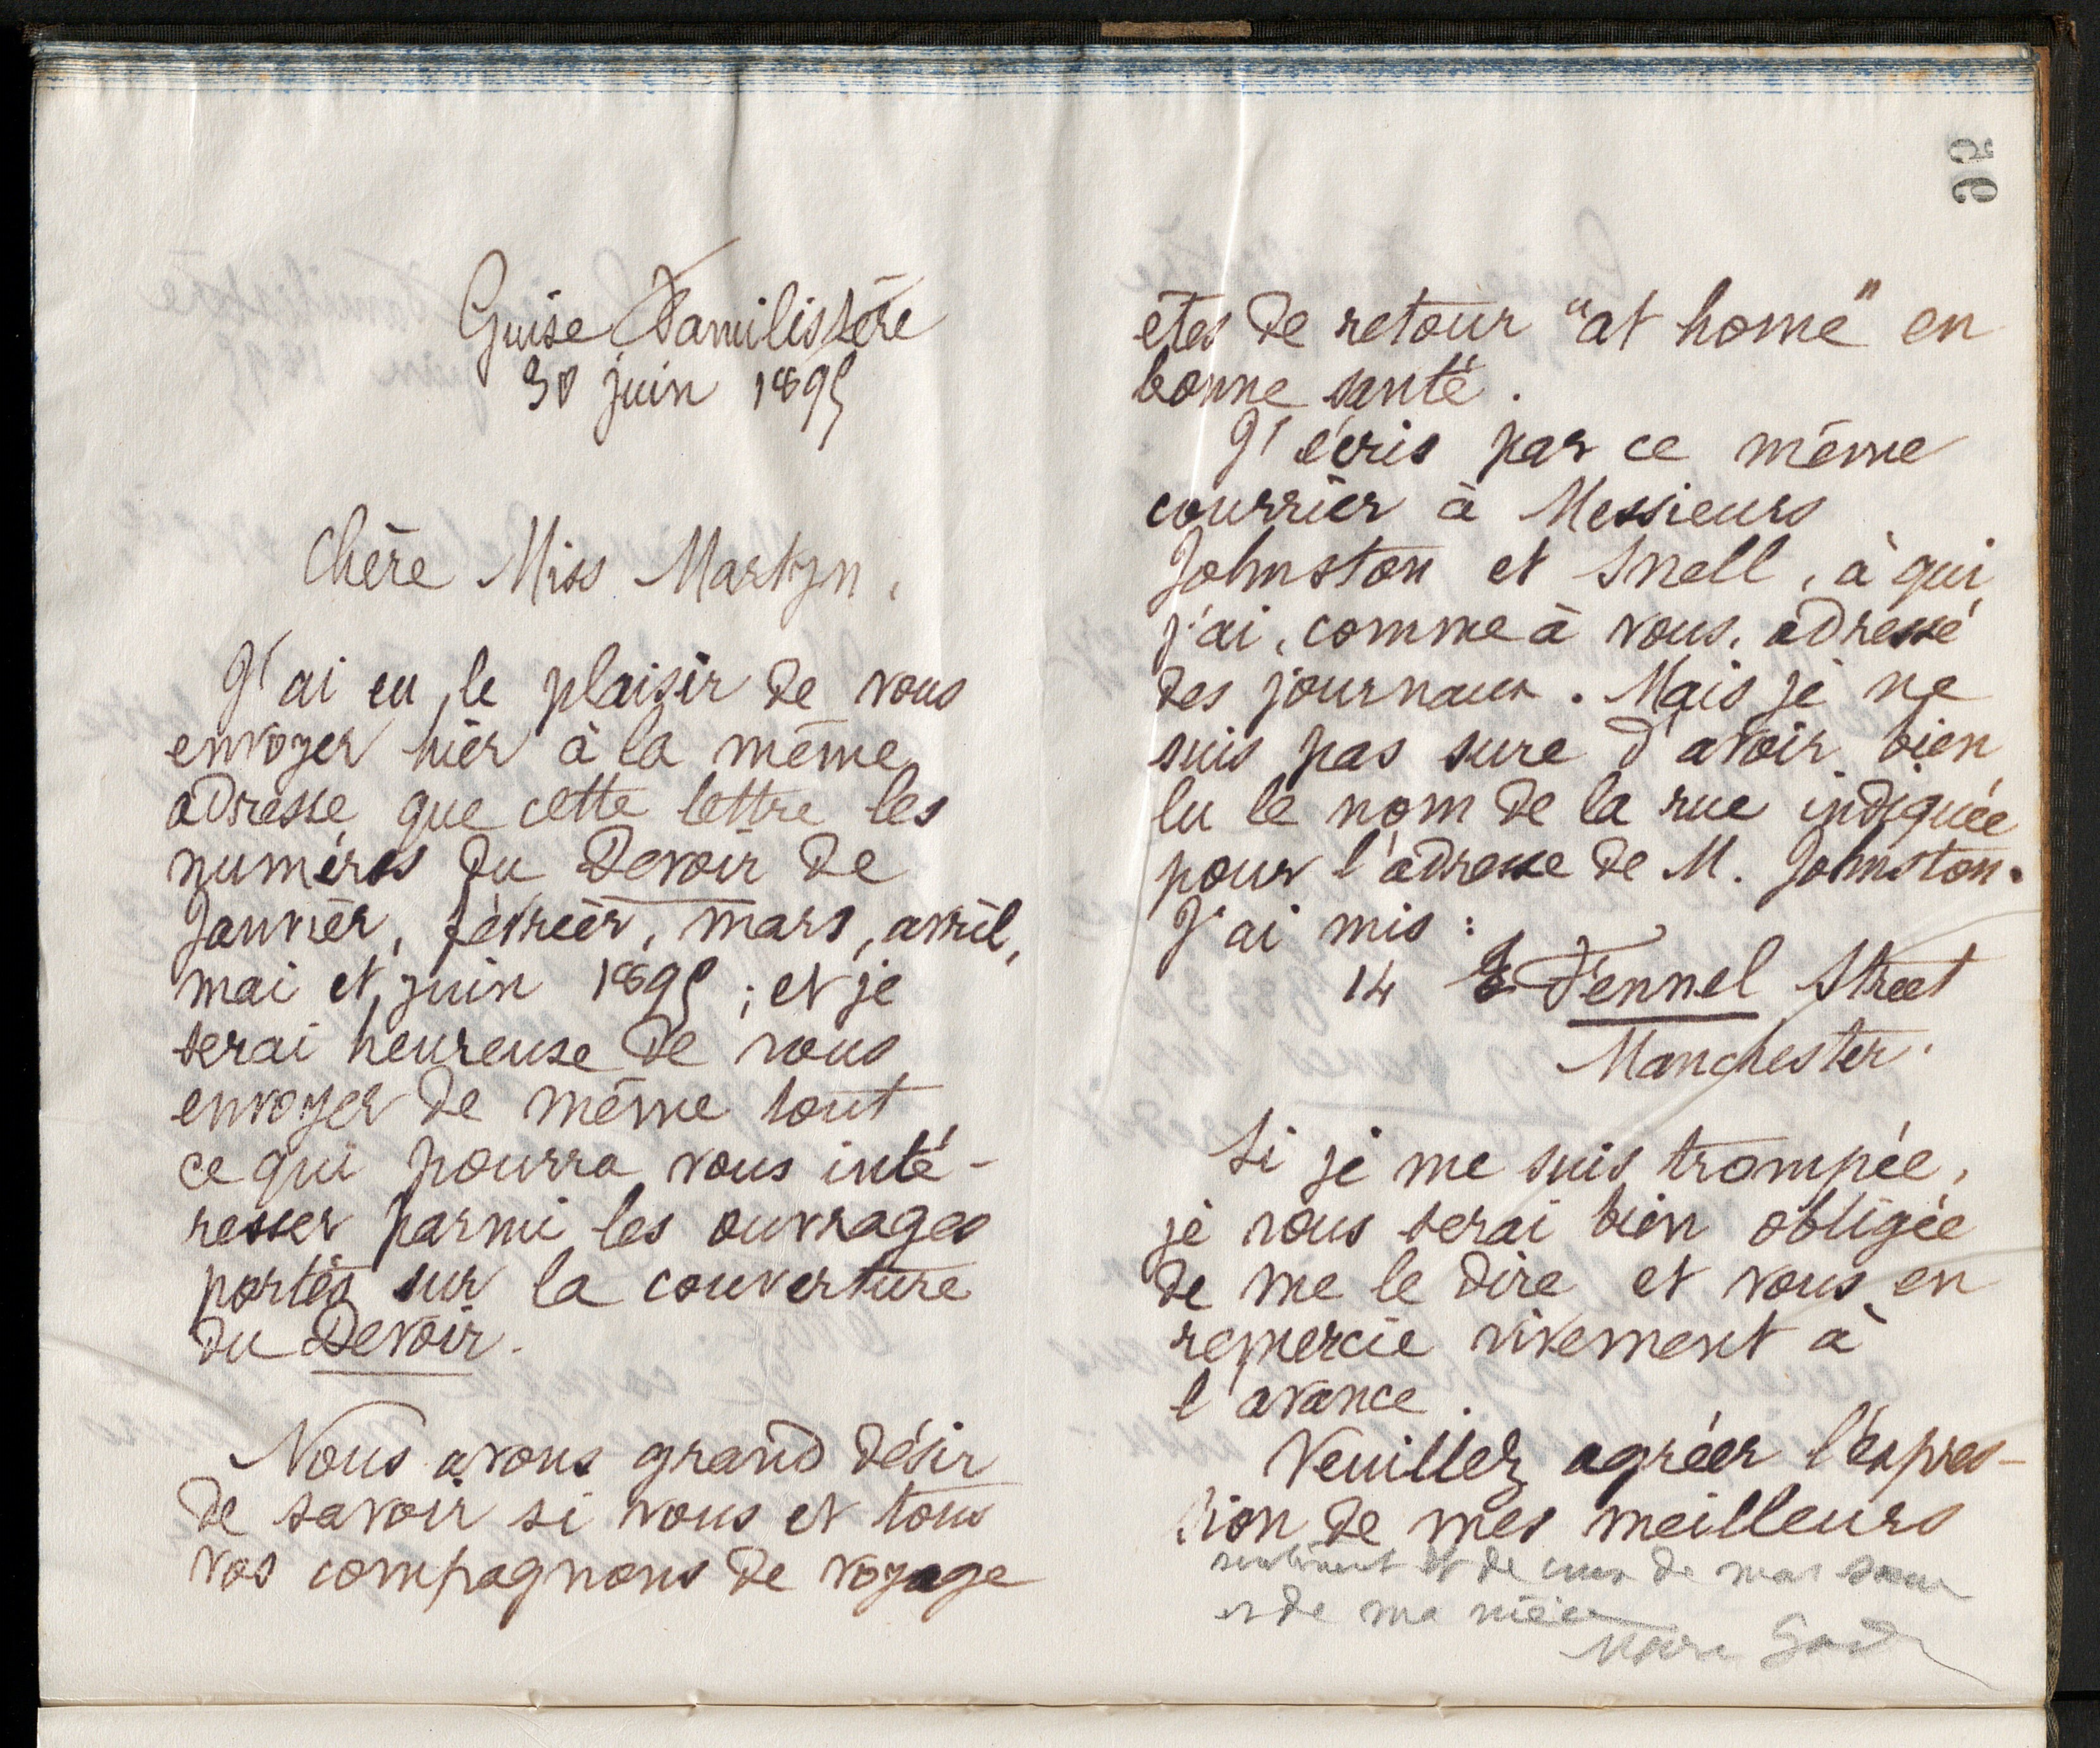 Guise Familistère
30 juin 1895
Chère Miss Martyn,
J'ai eu le plaisir de vous
envoyer hier à la même
adresse que cette lettre les
numéros du Devoir de
Janvier, février, mars, avril,
mai et juin 1895 ; et je
serai heureuse de vous
envoyer de même tout
ce qui pourra vous inté-
resser parmi les ouvrages
portés sur la couverture
du Devoir.
Nous avons grand désir
de savoir si vous et tous
vos compagnons de voyage
95
êtes de retour "at home" en
bonne santé.
J'écris par ce même
courrier à Messieurs
Johnston et Snell, à qui
j'ai, comme à vous, adressé
des journaux. Mais je ne
suis pas sure d'avoir bien
lu le nom de la rue indiquée
pour l'adresse de M. Johnston.
J'ai mis :
14 Fennel Street
Manchester.
Si je me suis trompée,
je vous serai bien obligée
de me le dire et vous en
remercie vivement à
l'avance.
Veuillez agréer l'expres-
sion de mes meilleurs
sentiments et de ceux de ma sœur
et de ma nièce
Marie God